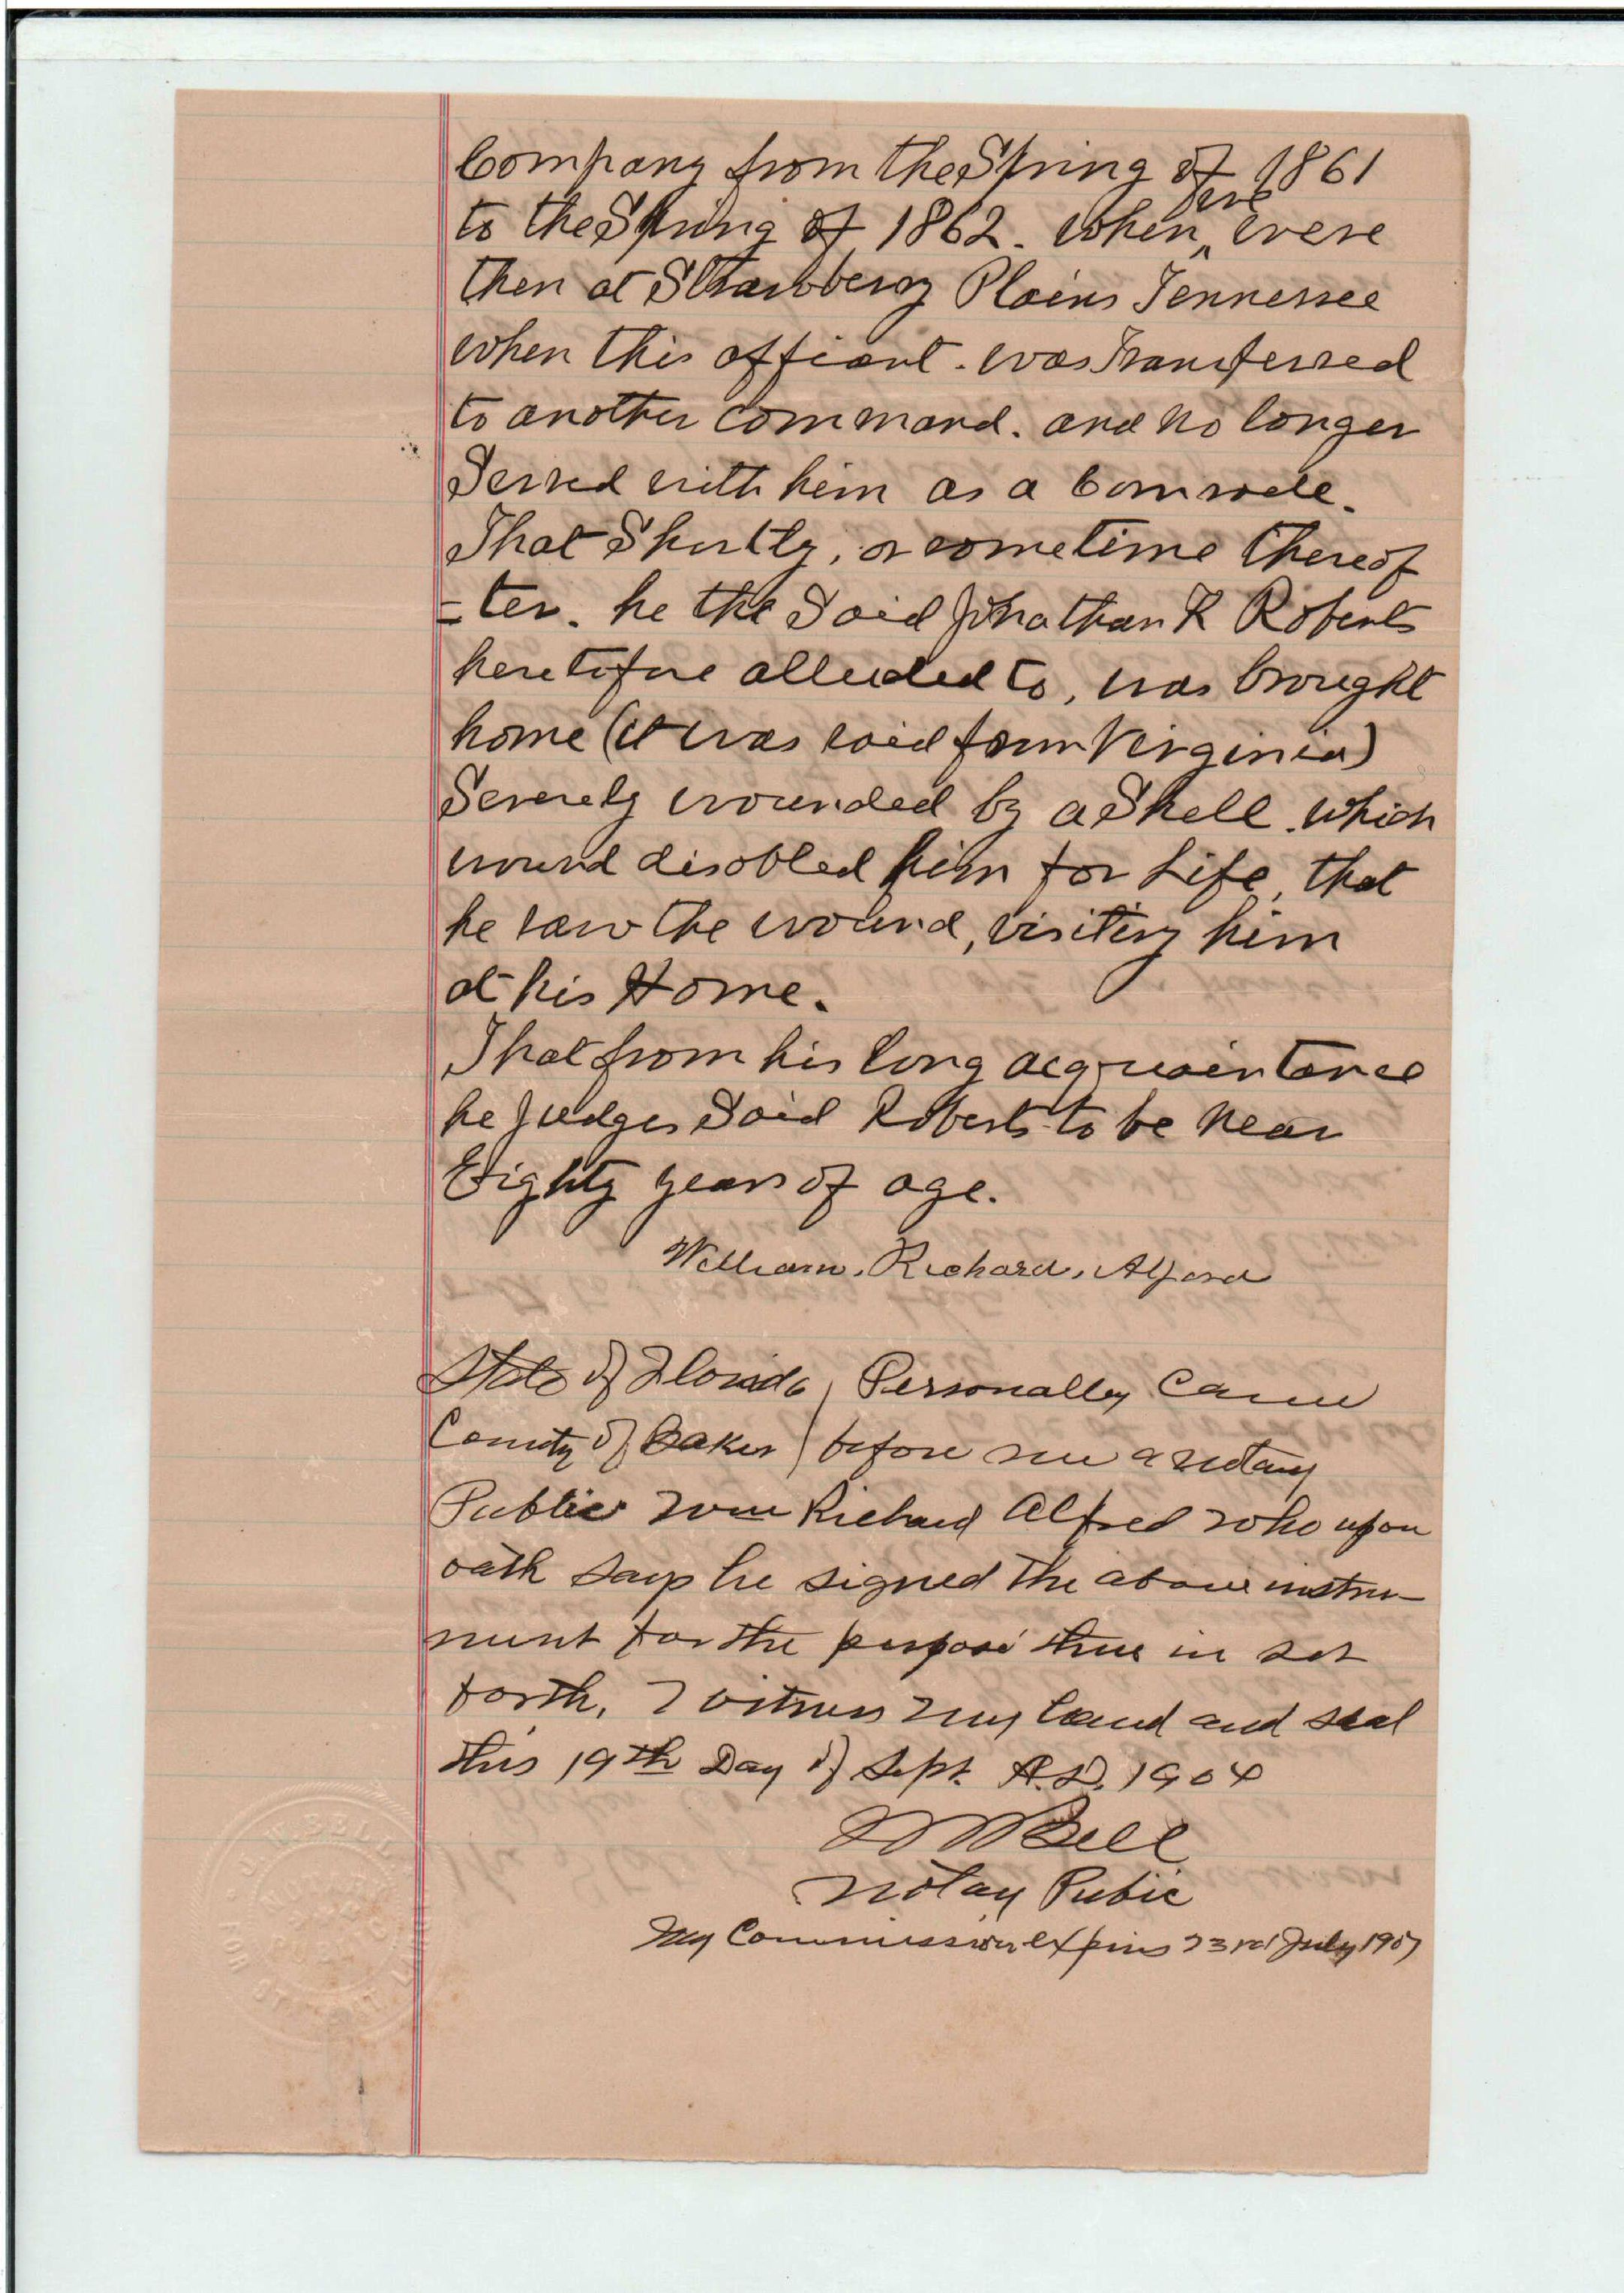 Company from the Spring of 1861
to the Spring of 1862. When we were
then at Strawberry Plains Tennessee
when this affiant. was Transferred
to another command. and no longer
Served with him as a Comrade.
That Shortly, or sometime thereaf
=ter. he the Said Jonathan R Roberts
heretofore alluded to, was brought
home (it was said from Virginia)
Severely wounded by a Shell. which
wound disabled him for Life, that
he saw the wound, visiting him
at his Home.
That from his long acquaintance
he Judges Said Roberts to be near
Eighty years of age.
William. Richard. Alford
State of Florida ) Personally Came
County of Baker ) before me a notary
Public Wm Richard Alfred who upon
oath says he signed the above instru-
ment for the purpose there in set
forth, Witness my hand and seal
this 19th Day of Sept. A.D. 1904
Bell
Notay Pubic
My Commission expires 23rd July 1907
BELL
FOR STATE AT LARGE